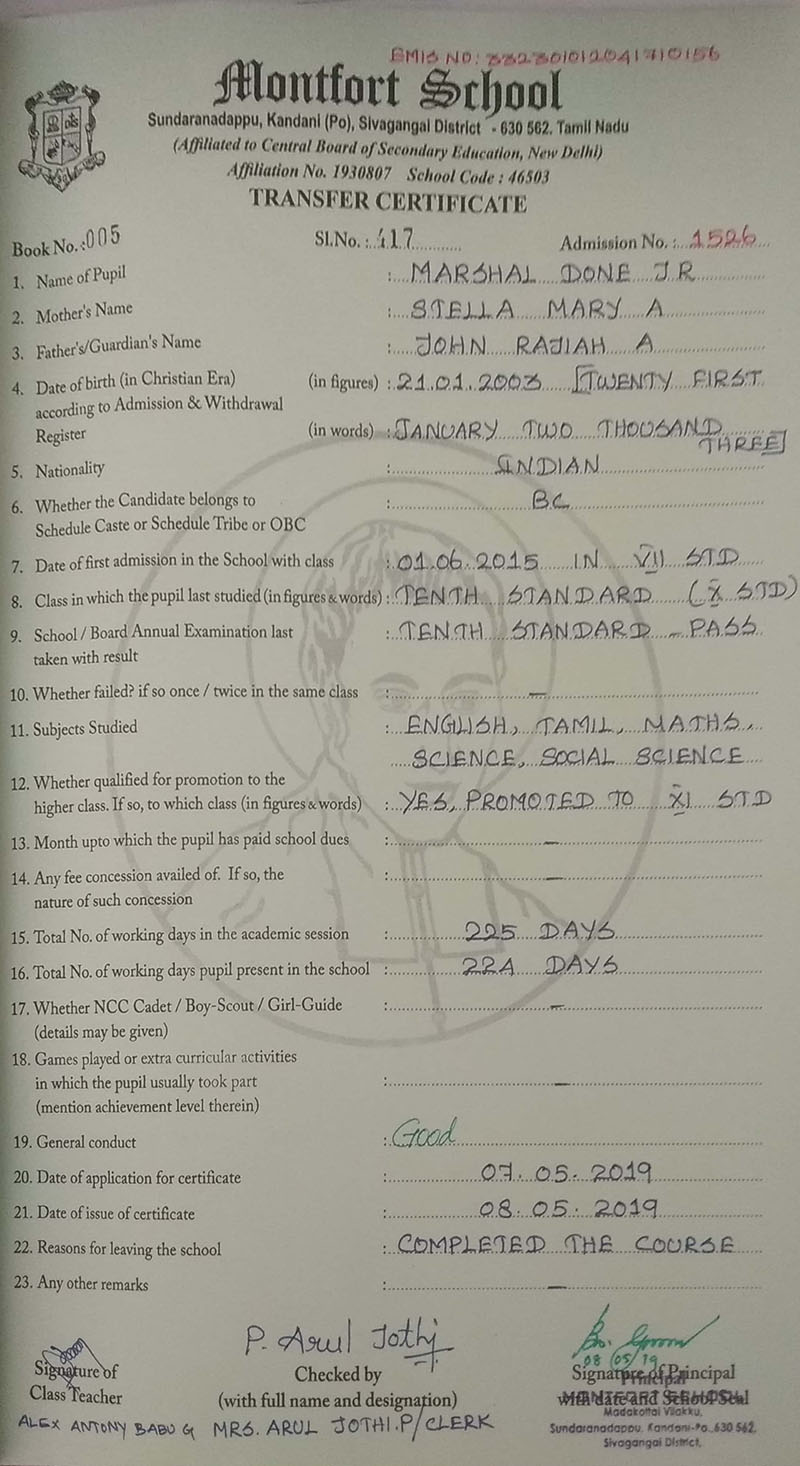 EMIS NO: 33230101204171015б
Montfort School
Sundaranadappu, Kandani (Po), Sivagangai District - 630 562. Tamil Nadu
(Affiliated to Central Board of Secondary Education, New Delhi)
Affiliation No. 1930807 School Code : 46503
TRANSFER CERTIFICATE
Book No.:005 Sl.No. : 417 Admission No. : 1526
1. Name of Pupil : MARSHAL DONE J.R
2. Mother's Name : STELLA MARY A
3. Father's/Guardian's Name : JOHN RAJIAH A
4. Date of birth (in Christian Era) (in figures) : 21.01.2003 [TWENTY FIRST
according to Admission & Withdrawal
Register (in words) : JANUARY TWO THOUSAND THREE]
5. Nationality : INDIAN
6. Whether the Candidate belongs to : BC
Schedule Caste or Schedule Tribe or OBC
7. Date of first admission in the School with class : 01.06.2015 IN VII STD
8. Class in which the pupil last studied (in figures & words) : TENTH STANDARD (X STD)
9. School / Board Annual Examination last : TENTH STANDARD - PASS
taken with result
10. Whether failed? if so once / twice in the same class : -
11. Subjects Studied : ENGLISH, TAMIL, MATHS,
SCIENCE, SOCIAL SCIENCE
12. Whether qualified for promotion to the
higher class. If so, to which class (in figures & words) : YES, PROMOTED TO XI STD
13. Month upto which the pupil has paid school dues : -
14. Any fee concession availed of. If so, the : -
nature of such concession
15. Total No. of working days in the academic session : 225 DAYS
16. Total No. of working days pupil present in the school : 224 DAYS
17. Whether NCC Cadet / Boy-Scout / Girl-Guide : -
(details may be given)
18. Games played or extra curricular activities
in which the pupil usually took part : -
(mention achievement level therein)
19. General conduct : Good
20. Date of application for certificate : 07.05.2019
21. Date of issue of certificate : 08.05.2019
22. Reasons for leaving the school : COMPLETED THE COURSE
23. Any other remarks : -
P. Arul Jothi
08/05/19
Signature of Checked by Signature of Principal
Principal
Class Teacher (with full name and designation) with date and School Seal
ALEX ANTONY BABU G MRS. ARUL JOTHI.P/CLERK
Madakottai Vilakku,
Sundaranadappu, Kandani-Po.,630 562,
Sivagangai District.